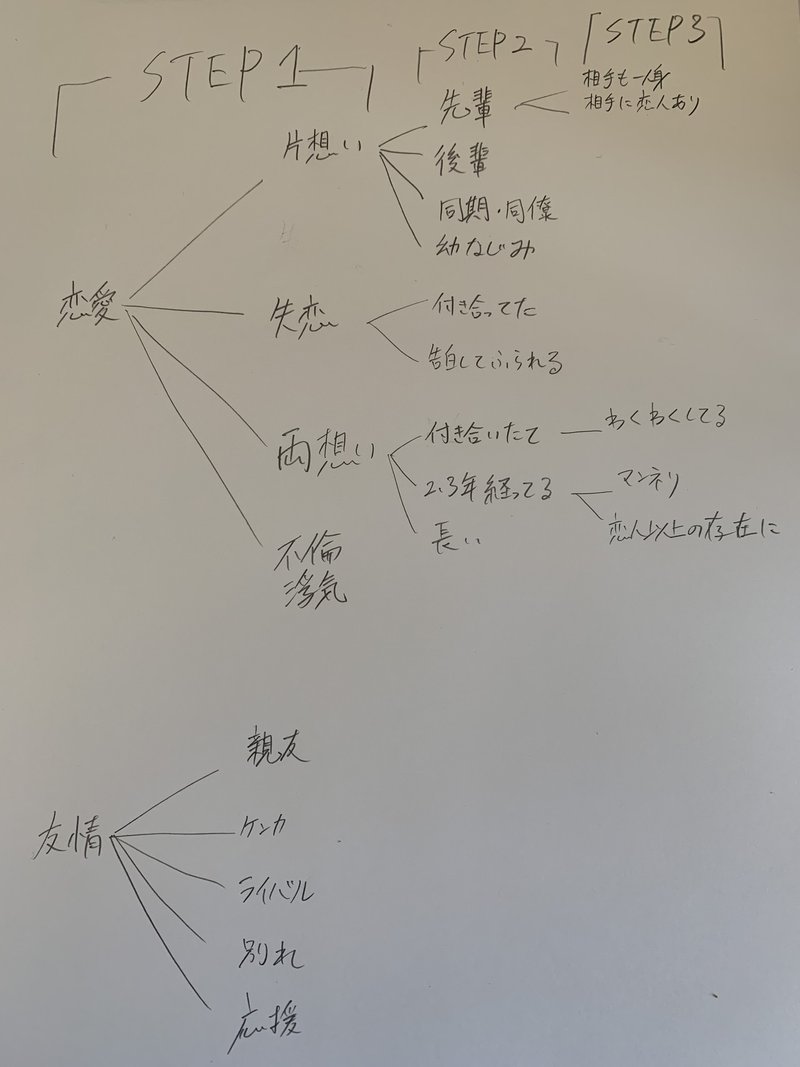 STEP1
STEP2
STEP3
恋愛
片想い
先輩
相手も一人身
相手に恋人あり
後輩
同期・同僚
幼なじみ
失恋
付き合ってた
告白してふられる
両想い
付き合いたて
わくわくしてる
2.3年経ってる
マンネリ
恋人以上の存在に
長い
不倫
浮気
友情
親友
ケンカ
ライバル
別れ
応援